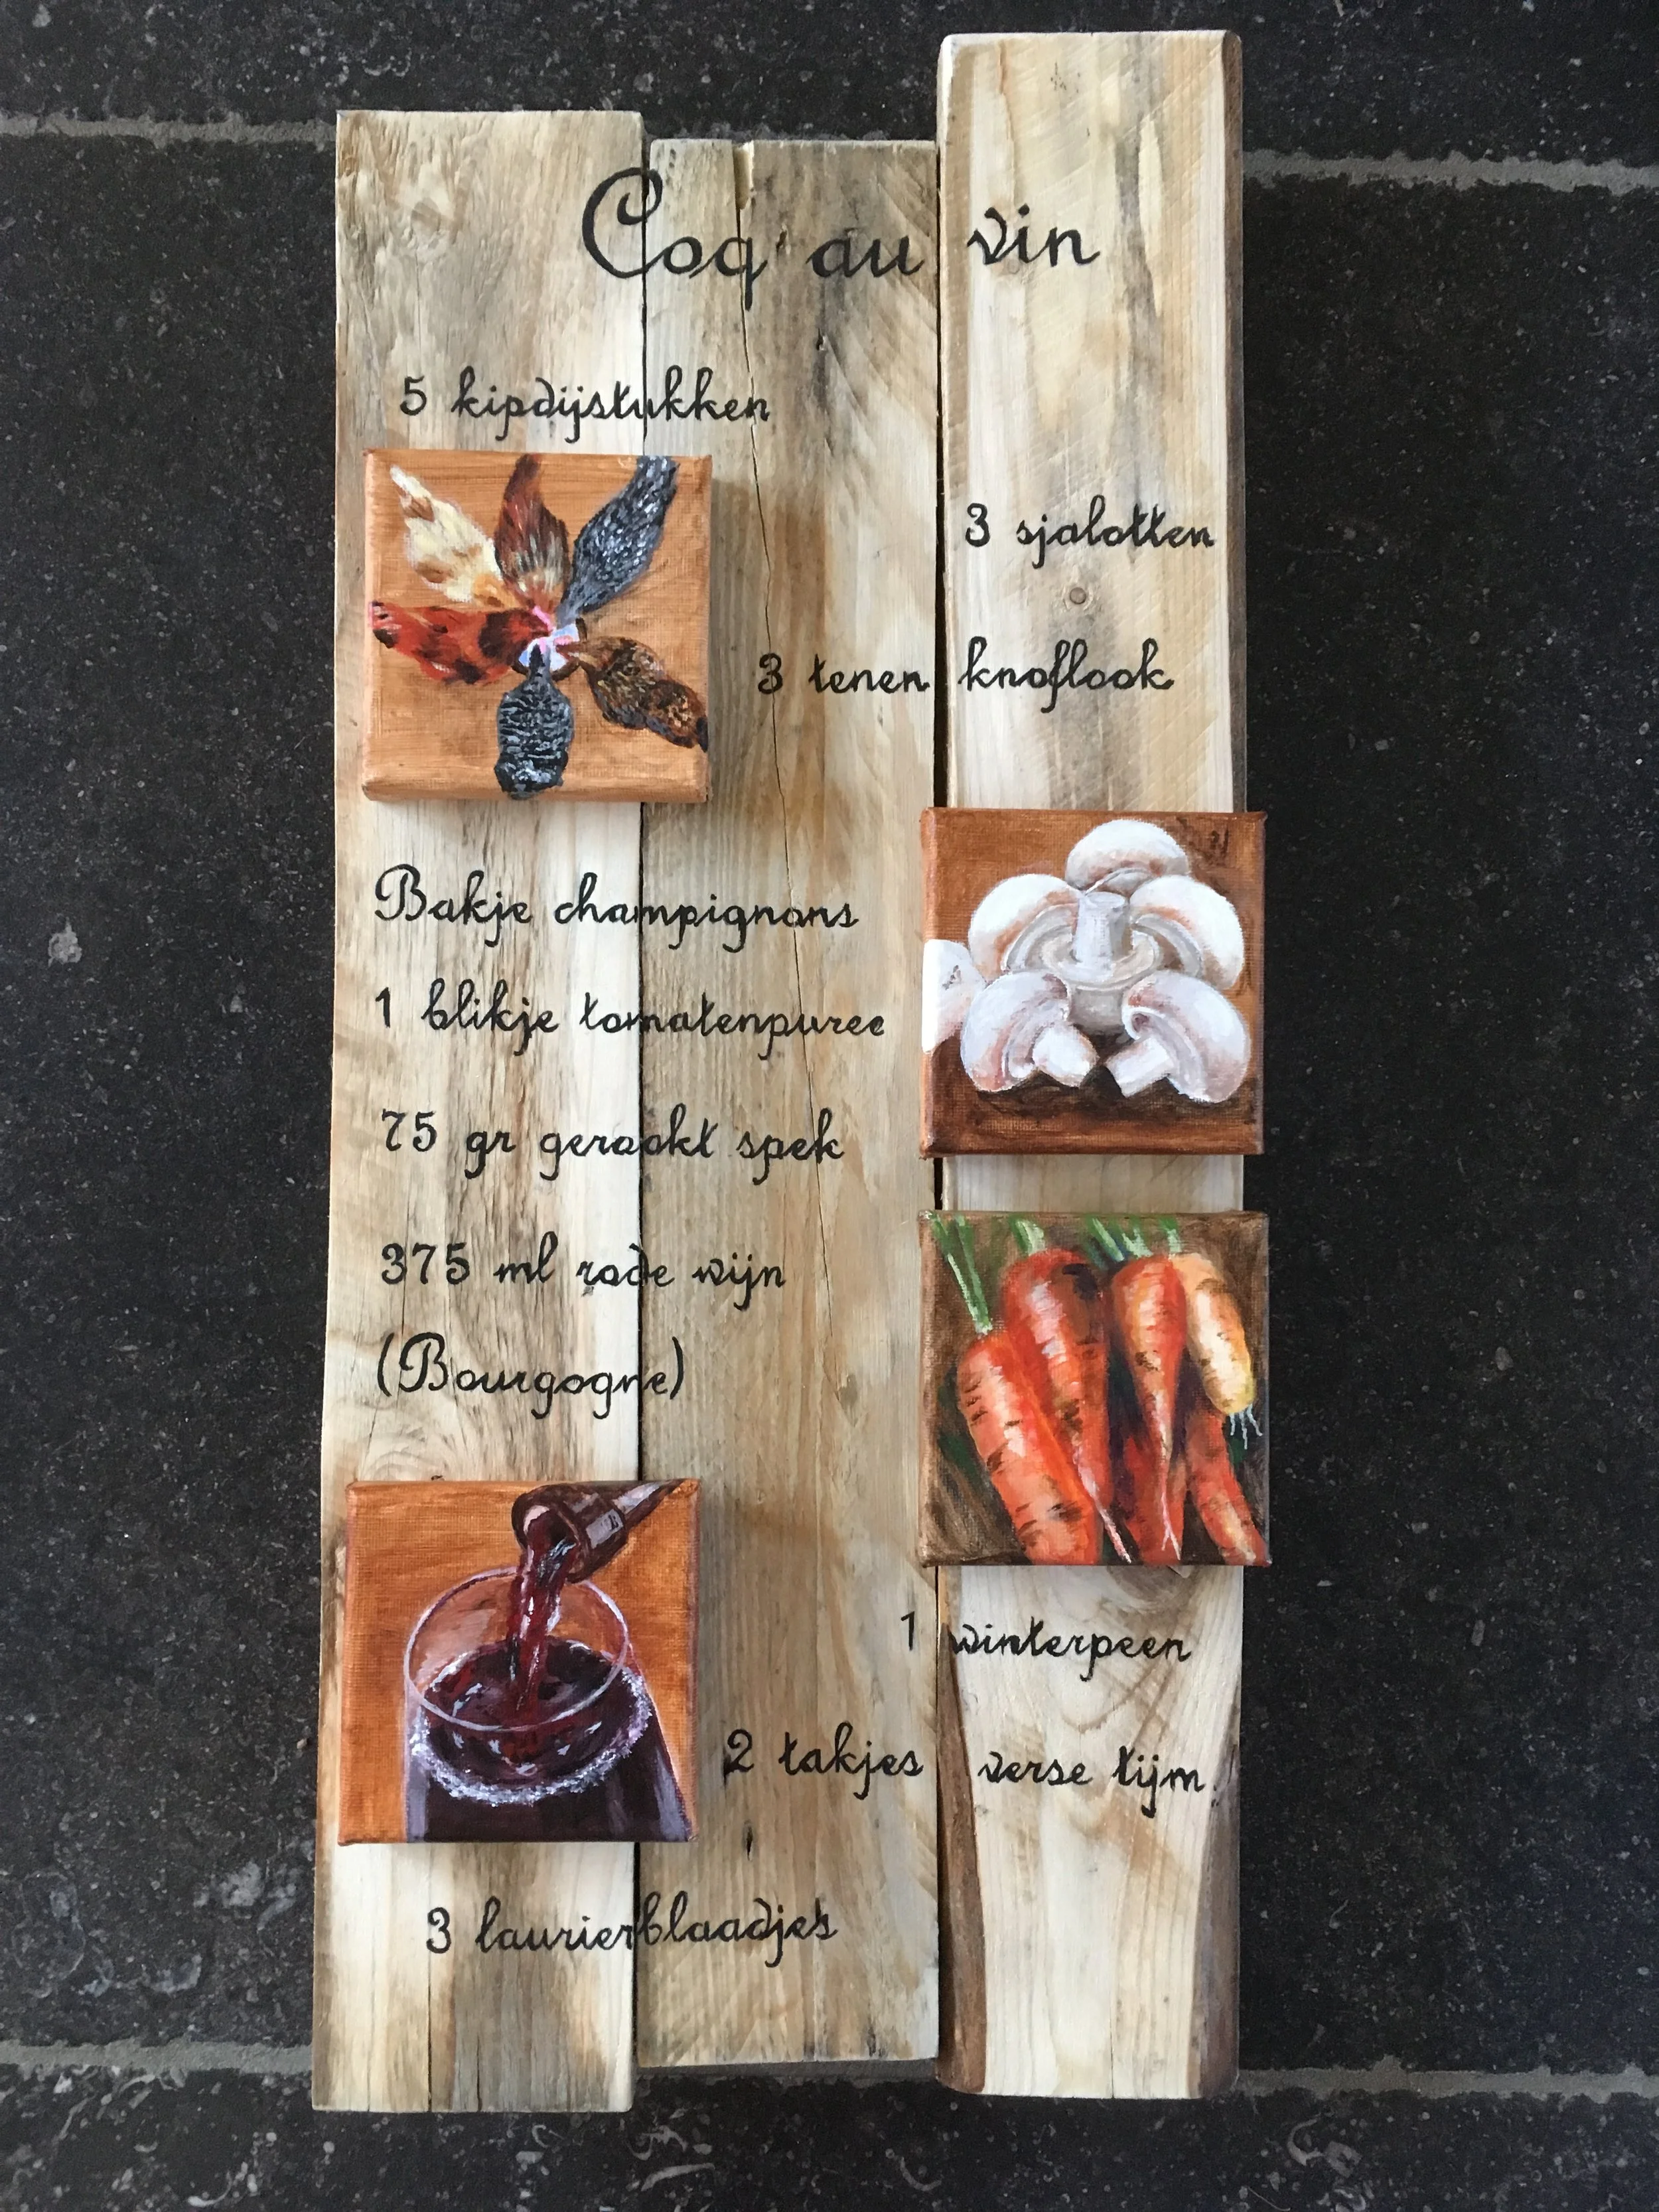 Coq au vin
5 kipdijstukken
3 sjalotten
3 tenen knoflook
Bakje champignons
1 blikje tomatenpuree
75 gr gerookt spek
375 ml rode wijn
(Bourgogne)
1 winterpeen
2 takjes verse tijm
3 laurierblaadjes